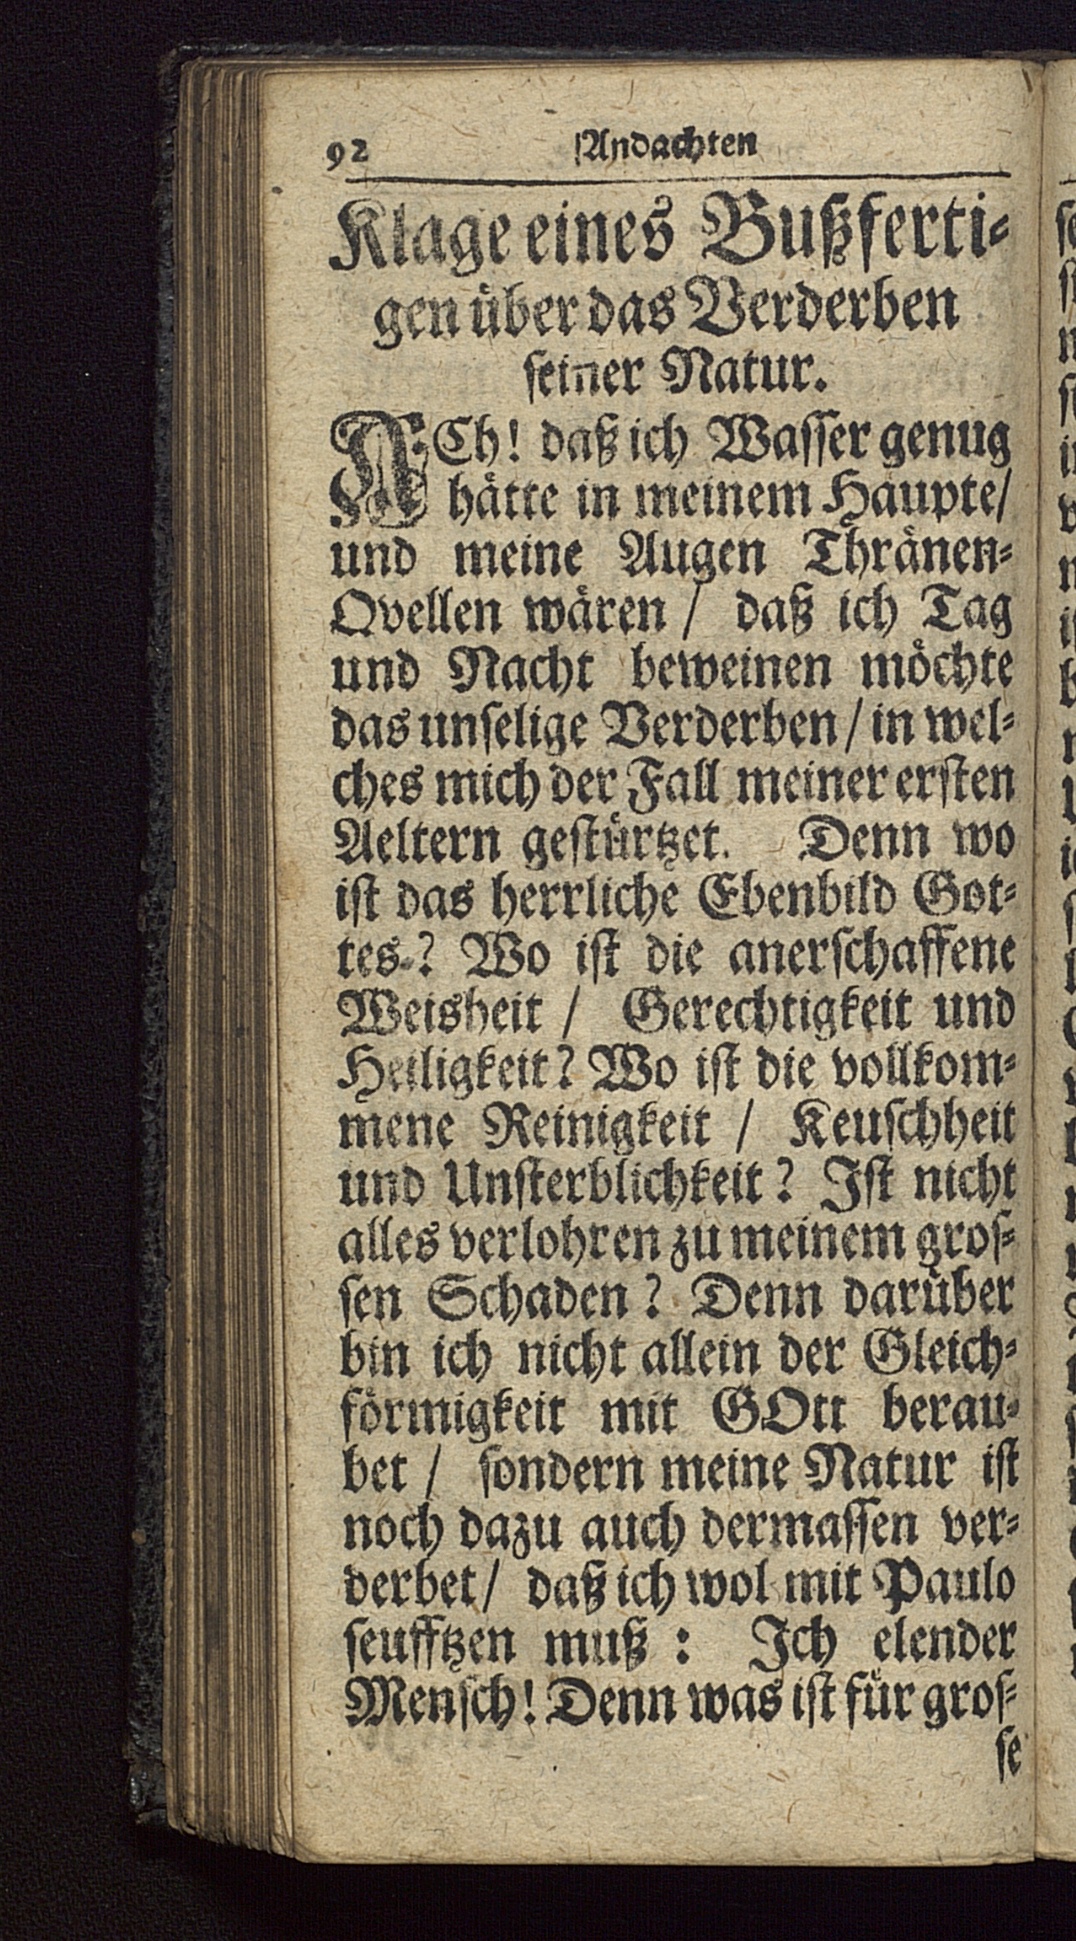 92 Andachten
Klage eines Bußferti⸗
gen über das Verderben
ſeiner Natur.
ACh! daß ich Waſſer genug
hätte in meinem Haupte/
und meine Augen Thränen⸗
Qvellen wären / daß ich Tag
und Nacht beweinen möchte
das unſelige Verderben / in wel⸗
ches mich der Fall meiner erſten
Aeltern geſtürtzet. Denn wo
iſt das herrliche Ebenbild Got⸗
tes? Wo iſt die anerſchaffene
Weisheit / Gerechtigkeit und
Heiligkeit? Wo iſt die vollkom⸗
mene Reinigkeit / Keuſchheit
und Unſterblichkeit? Iſt nicht
alles verlohren zu meinem groſ⸗
ſen Schaden? Denn darüber
bin ich nicht allein der Gleich⸗
förmigkeit mit GOtt berau⸗
bet / ſondern meine Natur iſt
noch dazu auch dermaſſen ver⸗
derbet/ daß ich wol mit Paulo
ſeufftzen muß : Ich elender
Menſch! Denn was iſt für groſ⸗
ſe